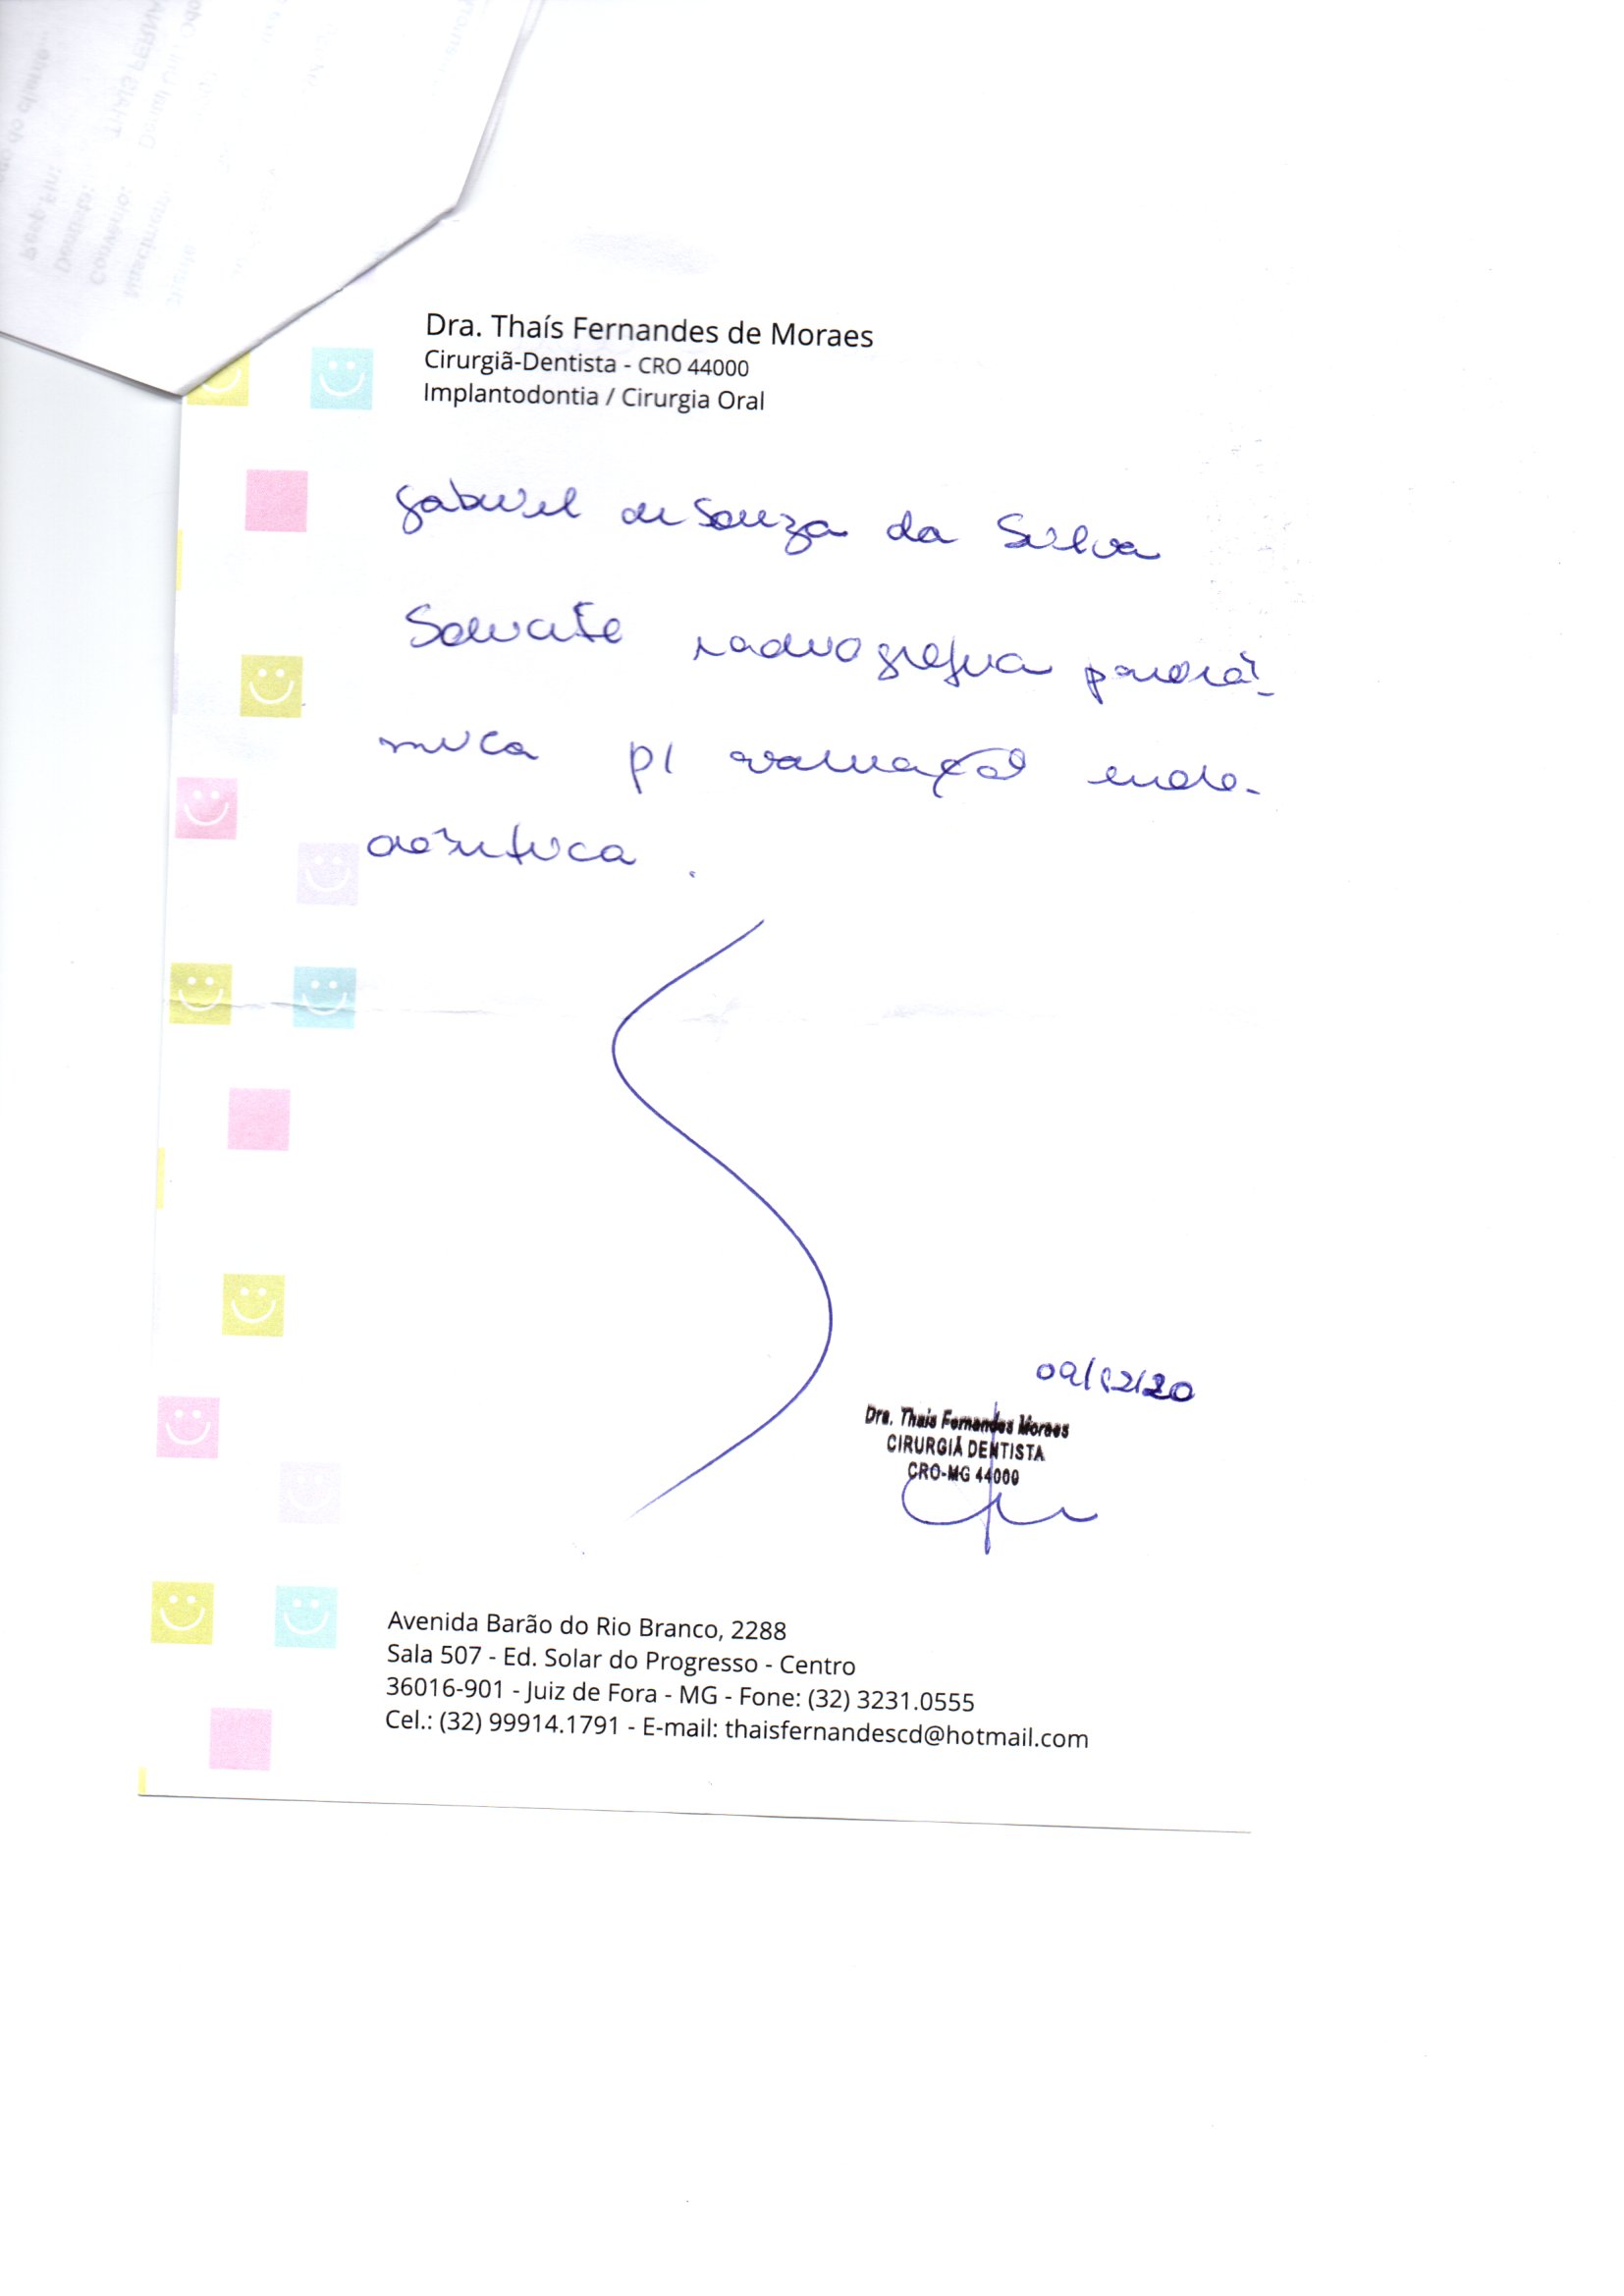 Dra. Thaís Fernandes de Moraes
Cirurgiã-Dentista - CRO 44000
Implantodontia / Cirurgia Oral
Gabriel de Souza da Silva
Solicito radiografia panorâ-
mica p/ avaliação endo-
dôntica.
09/12/20
Dra. Thais Fernandes Moraes
CIRURGIÃ DENTISTA
CRO-MG 44000
Avenida Barão do Rio Branco, 2288
Sala 507 - Ed. Solar do Progresso - Centro
36016-901 - Juiz de Fora - MG - Fone: (32) 3231.0555
Cel.: (32) 99914.1791 - E-mail: thaisfernandescd@hotmail.com